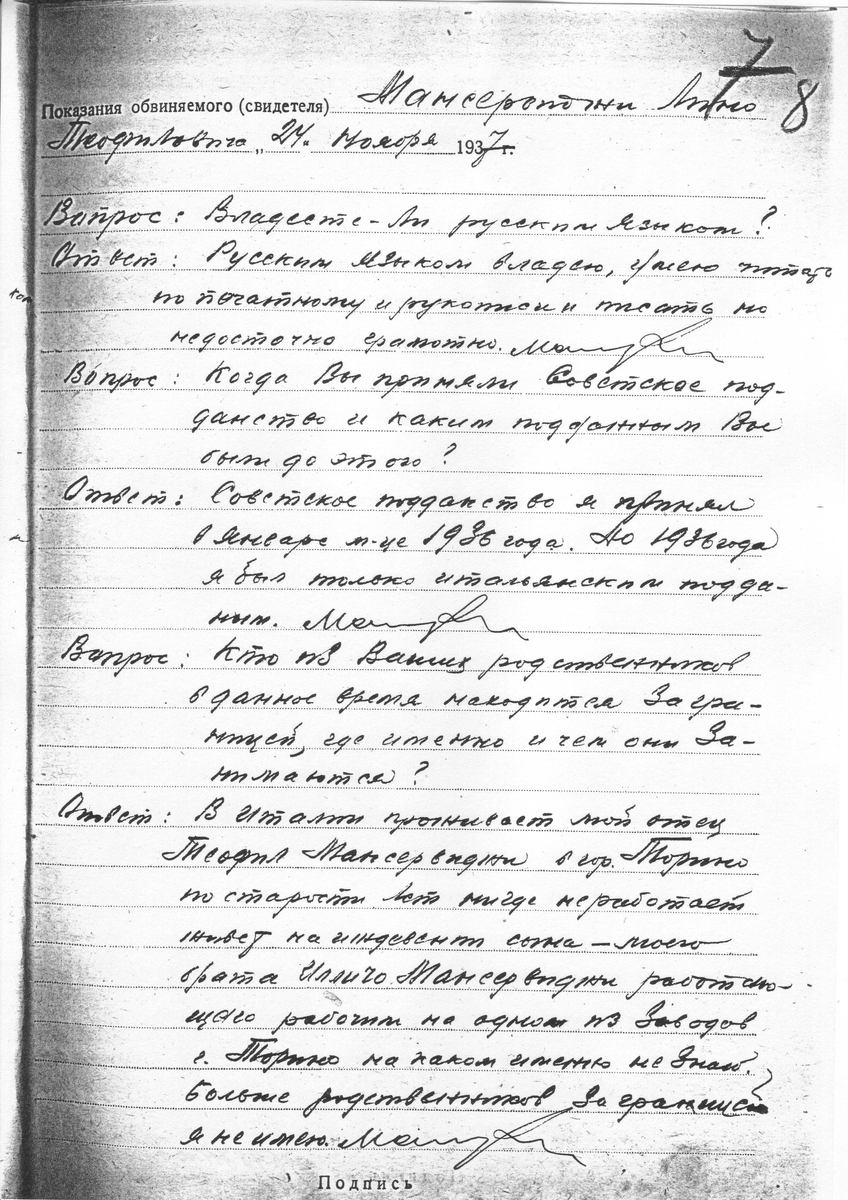 7
8
Показания обвиняемого (свидетеля) Мансервиджи Лино
Теофиловича „24“ ноября 1937 г.
Вапрос: Владеете-ли русским языком?
Ответ: Русским языком владею, умею читать
по печатному и рукописи и писать но
недосточно грамотно.
Вопрос: Когда Вы приняли Советское под-
данство и каким подданным Вы
были до этого?
Ответ: Советское подданство я принял
в январе м-це 1936 года. До 1936 года
я был только итальянским подда-
ным.
Вапрос: Кто из Ваших родственников
в данное время находится Загра-
ницей, где именно и чем они За-
нимаются?
Ответ: В Италии проживает мой отец
Теофил Мансервиджи в гор. Торино
по старости лет нигде не работает
живет на иждевении сына – моего
брата Илличо Мансервиджи работаю-
щего рабочим на одном из Заводов
г. Торино на каком имено не Знаю.
Больше родственников Заграницей
я не имею.
Подпись